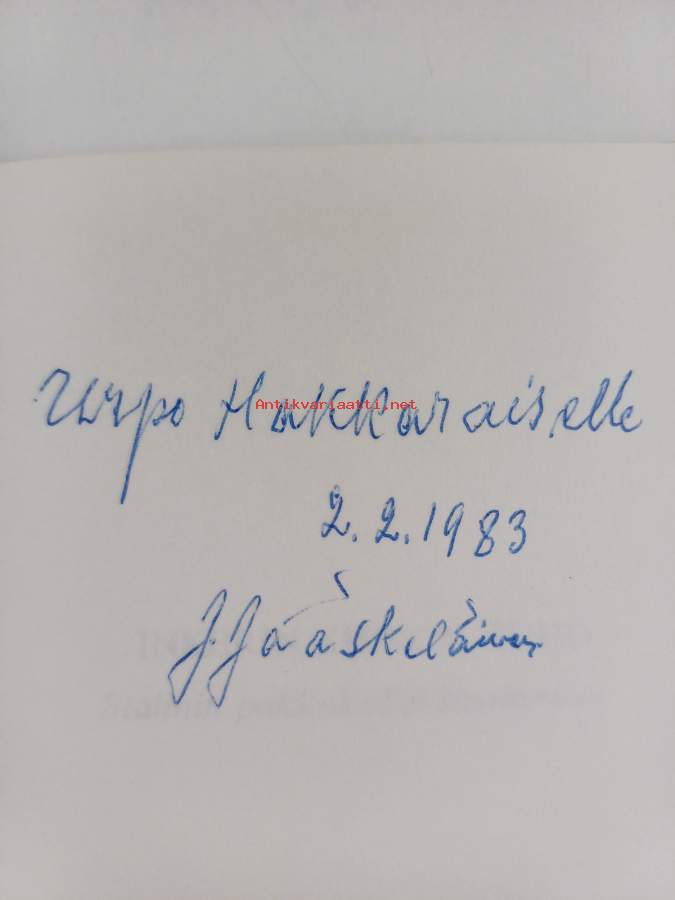 Urpo Hakkaraiselle
Antikvariaatti.net
2.2.1983
J Jääskeläinen